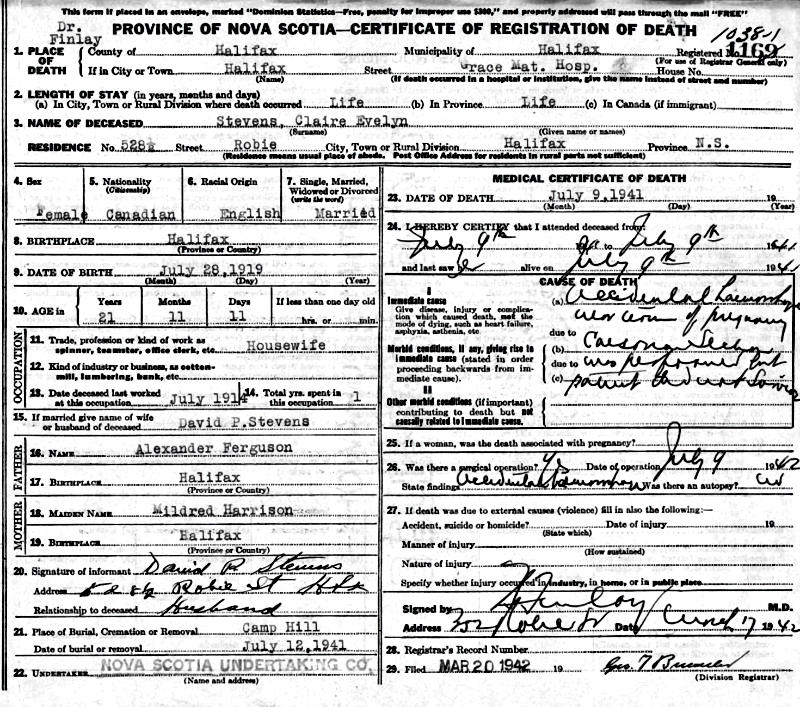 This form if placed in an envelope, marked "Dominion Statistics—Free, penalty for improper use $300," and properly addressed will pass through the mail "FREE"
Dr. Finlay
PROVINCE OF NOVA SCOTIA—CERTIFICATE OF REGISTRATION OF DEATH
1038-1
1. PLACE OF DEATH
County of Halifax Municipality of Halifax Registered No. 1169
(For use of Registrar General only)
If in City or Town Halifax Street Grace Mat. Hosp. House No.
(Name) (If death occurred in a hospital or institution, give the name instead of street and number)
2. LENGTH OF STAY (in years, months and days)
(a) In City, Town or Rural Division where death occurred Life (b) In Province Life (c) In Canada (if immigrant)
3. NAME OF DECEASED Stevens, Claire Evelyn
(Surname) (Given name or names)
RESIDENCE No. 528½ Street Robie City, Town or Rural Division Halifax Province N.S.
(Residence means usual place of abode. Post Office Address for residents in rural parts not sufficient)
4. Sex Female
5. Nationality (Citizenship) Canadian
6. Racial Origin English
7. Single, Married, Widowed or Divorced (write the word) Married
8. BIRTHPLACE Halifax
(Province or Country)
9. DATE OF BIRTH July 28, 1919
(Month) (Day) (Year)
10. AGE in Years 21 Months 11 Days 11 If less than one day old hrs. or min.
OCCUPATION
11. Trade, profession or kind of work as spinner, teamster, office clerk, etc. Housewife
12. Kind of industry or business, as cotton-mill, lumbering, bank, etc.
13. Date deceased last worked at this occupation July 1914
14. Total yrs. spent in this occupation 1
15. If married give name of wife or husband of deceased David P. Stevens
FATHER
16. NAME Alexander Ferguson
17. BIRTHPLACE Halifax
(Province or Country)
MOTHER
18. MAIDEN NAME Mildred Harrison
19. BIRTHPLACE Halifax
(Province or Country)
20. Signature of informant David P. Stevens
Address 528½ Robie St Hfx
Relationship to deceased Husband
21. Place of Burial, Cremation or Removal Camp Hill
Date of burial or removal July 12, 1941
22. UNDERTAKER NOVA SCOTIA UNDERTAKING CO.
(Name and address)
MEDICAL CERTIFICATE OF DEATH
23. DATE OF DEATH July 9, 1941 19
(Month) (Day) (Year)
24. I HEREBY CERTIFY that I attended deceased from:
July 9th to July 9th 1941
and last saw her alive on July 9th 1941
CAUSE OF DEATH
I
Immediate cause
Give disease, injury or complication which caused death, not the mode of dying, such as heart failure, asphyxia, asthenia, etc.
(a) Accidental haemorrhage
of pregnancy
due to
Morbid conditions, if any, giving rise to immediate cause (stated in order proceeding backwards from immediate cause).
(b) Caesarian Section
due to was performed but
(c) patient did not survive
II
Other morbid conditions (if important) contributing to death but not causally related to immediate cause.
25. If a woman, was the death associated with pregnancy?
26. Was there a surgical operation? Yes Date of operation July 9 1942
State findings Accidental haemorrhage Was there an autopsy?
27. If death was due to external causes (violence) fill in also the following:—
Accident, suicide or homicide? Date of injury 19
(State which)
Manner of injury
(How sustained)
Nature of injury
Specify whether injury occurred in industry, in home, or in public place
Signed by Finlay M.D.
Address Robie St Date March 17 1942
28. Registrar's Record Number
29. Filed MAR 20 1942 19
(Division Registrar)